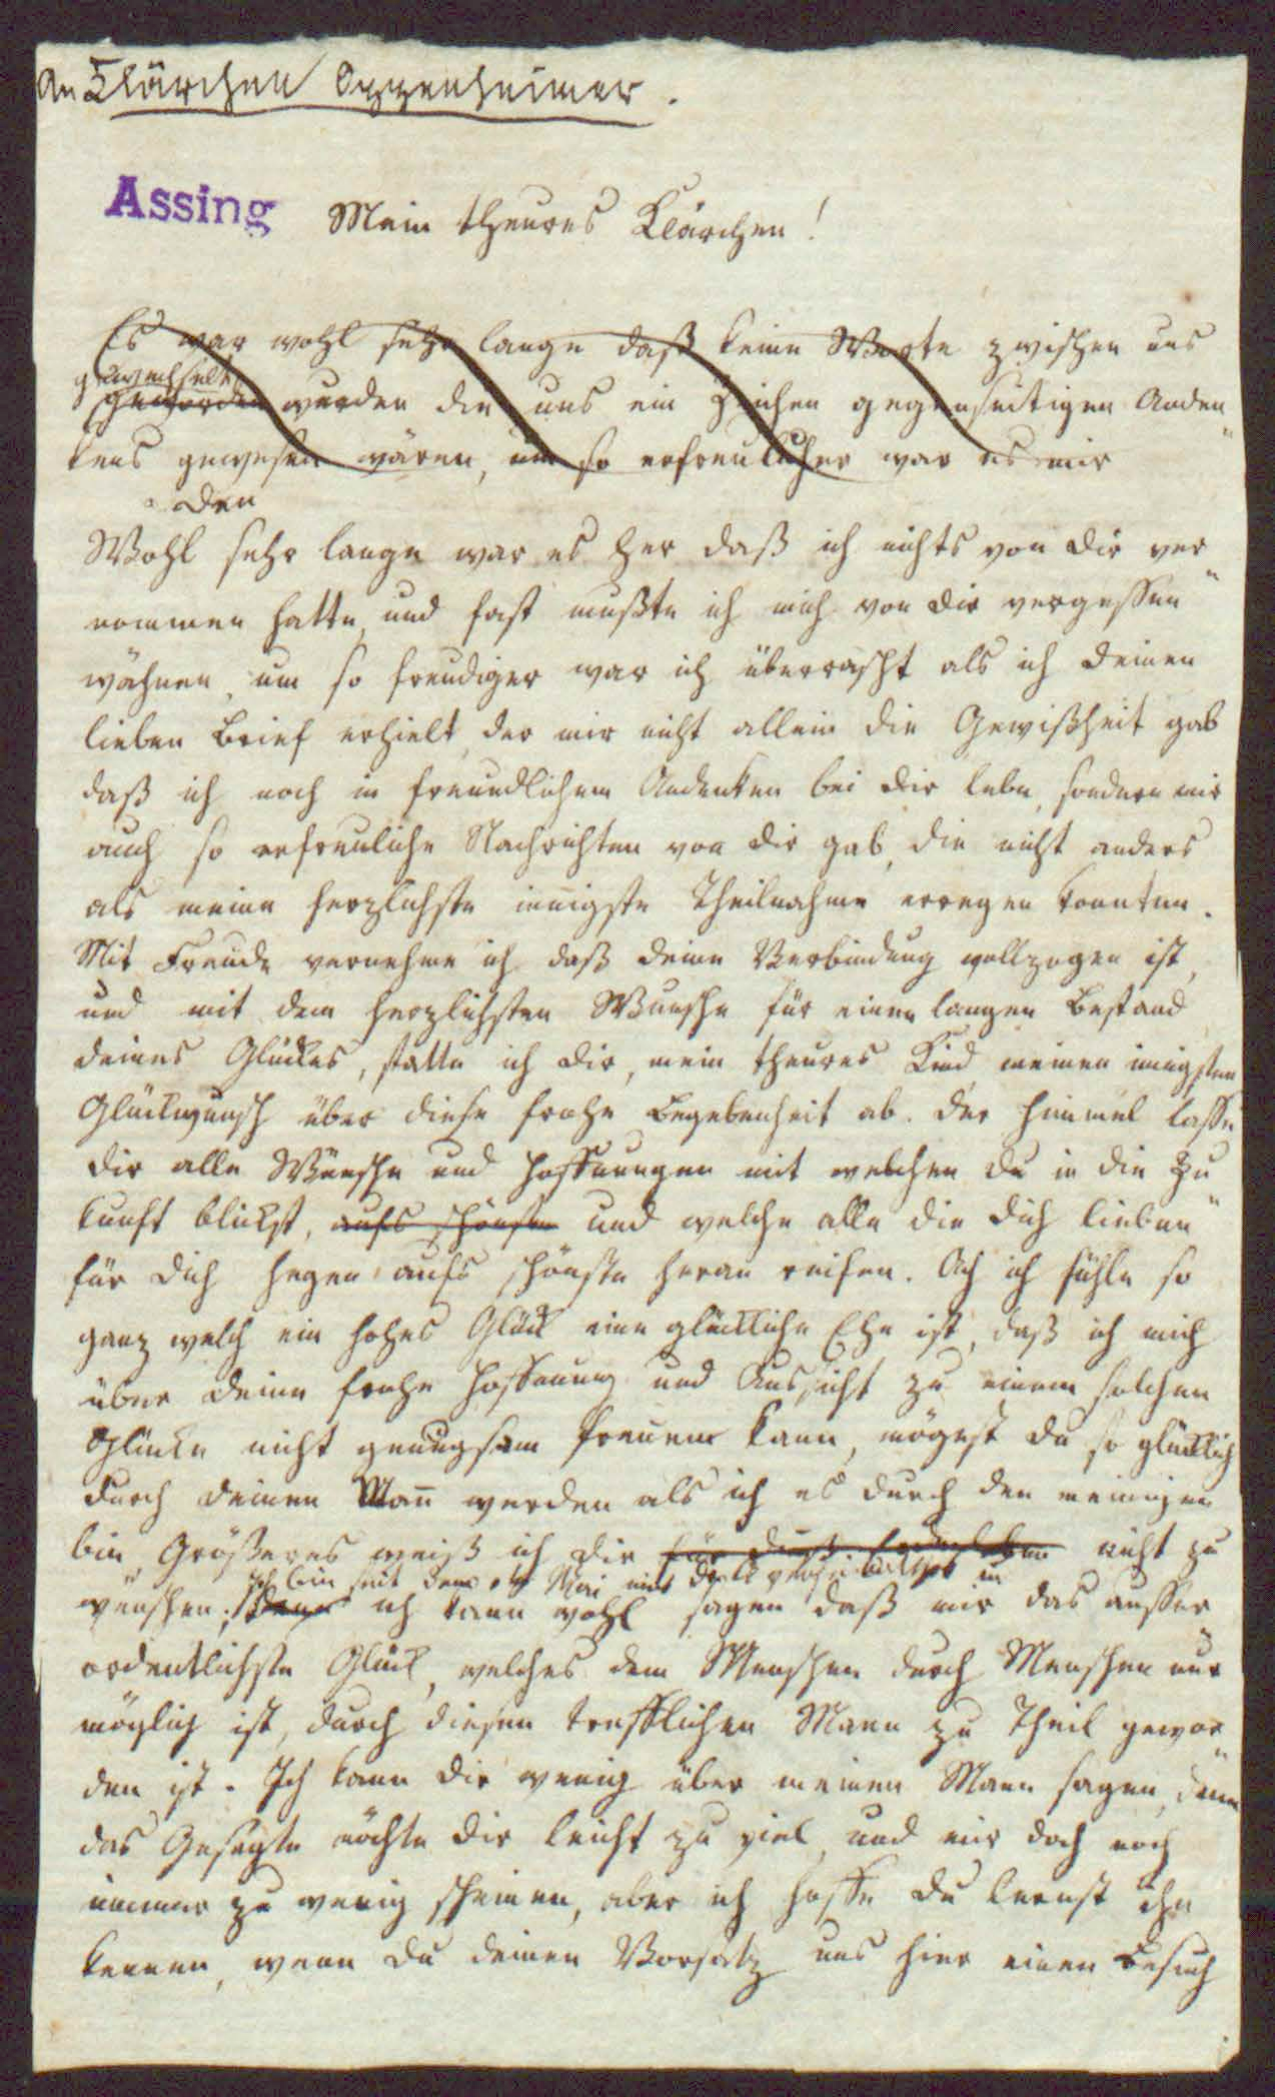 An Klärchen Oppenheimer.
Assing
Mein theures Klärchen!
Es war wohl sehr lange daß keine Worte zwischen uns
gewechselt
geworden wurden die uns ein Zeichen gegenseitigen Anden
kens gewesen wären, um so erfreulicher war es mir
den
Wohl sehr lange war es her daß ich nichts von dir ver
nommen hatte, und fast mußte ich mich von dir vergessen
wähnen, um so freudiger war ich überrascht als ich deinen
lieben Brief erhielt, der mir nicht allein die Gewißheit gab
daß ich noch in freundlichem Andenken bei dir lebe, sondern mir
auch so erfreuliche Nachrichten von dir gab, die nicht anders
als meine herzlichste innigste Theilnahme erregen konnten.
Mit Freude vernehme ich daß deine Verbindung vollzogen ist,
und mit dem herzlichsten Wunsche für einen langen Bestand
deines Glückes, statte ich dir, mein theures Kind meinen innigsten
Glückwunsch über diese frohe Begebenheit ab. Der Himmel lasse
dir alle Wünsche und Hoffnungen mit welchen du in die Zu
kunft blickst, aufs schönste und welche alle die dich lieben
für dich hegen aufs schönste heran reifen. Ach ich fühle so
ganz welch ein hohes Glück eine glückliche Ehe ist, daß ich mich
über deine frohe Hoffnung und Aussicht zu einem solchen
Glücke nicht genugsam freuen kann, mögest du so glücklich
durch deinen Mann werden als ich es durch den meinigen
bin, Größeres weiß ich dir nicht zu
Ich bin seit dem Mai mit
wünschen; ich kann wohl sagen daß mir das ausser
ordentlichste Glück, welches dem Menschen durch Menschen nur
möglich ist, durch diesen trefflichen Mann zu Theil gewor
den ist. Ich kann dir wenig über meinen Mann sagen, denn
das Gesagte möchte dir leicht zu viel, und mir doch noch
immer zu wenig scheinen, aber ich hoffe du lernst ihn
kennen, wenn du deinen Vorsatz uns hier einen Besuch